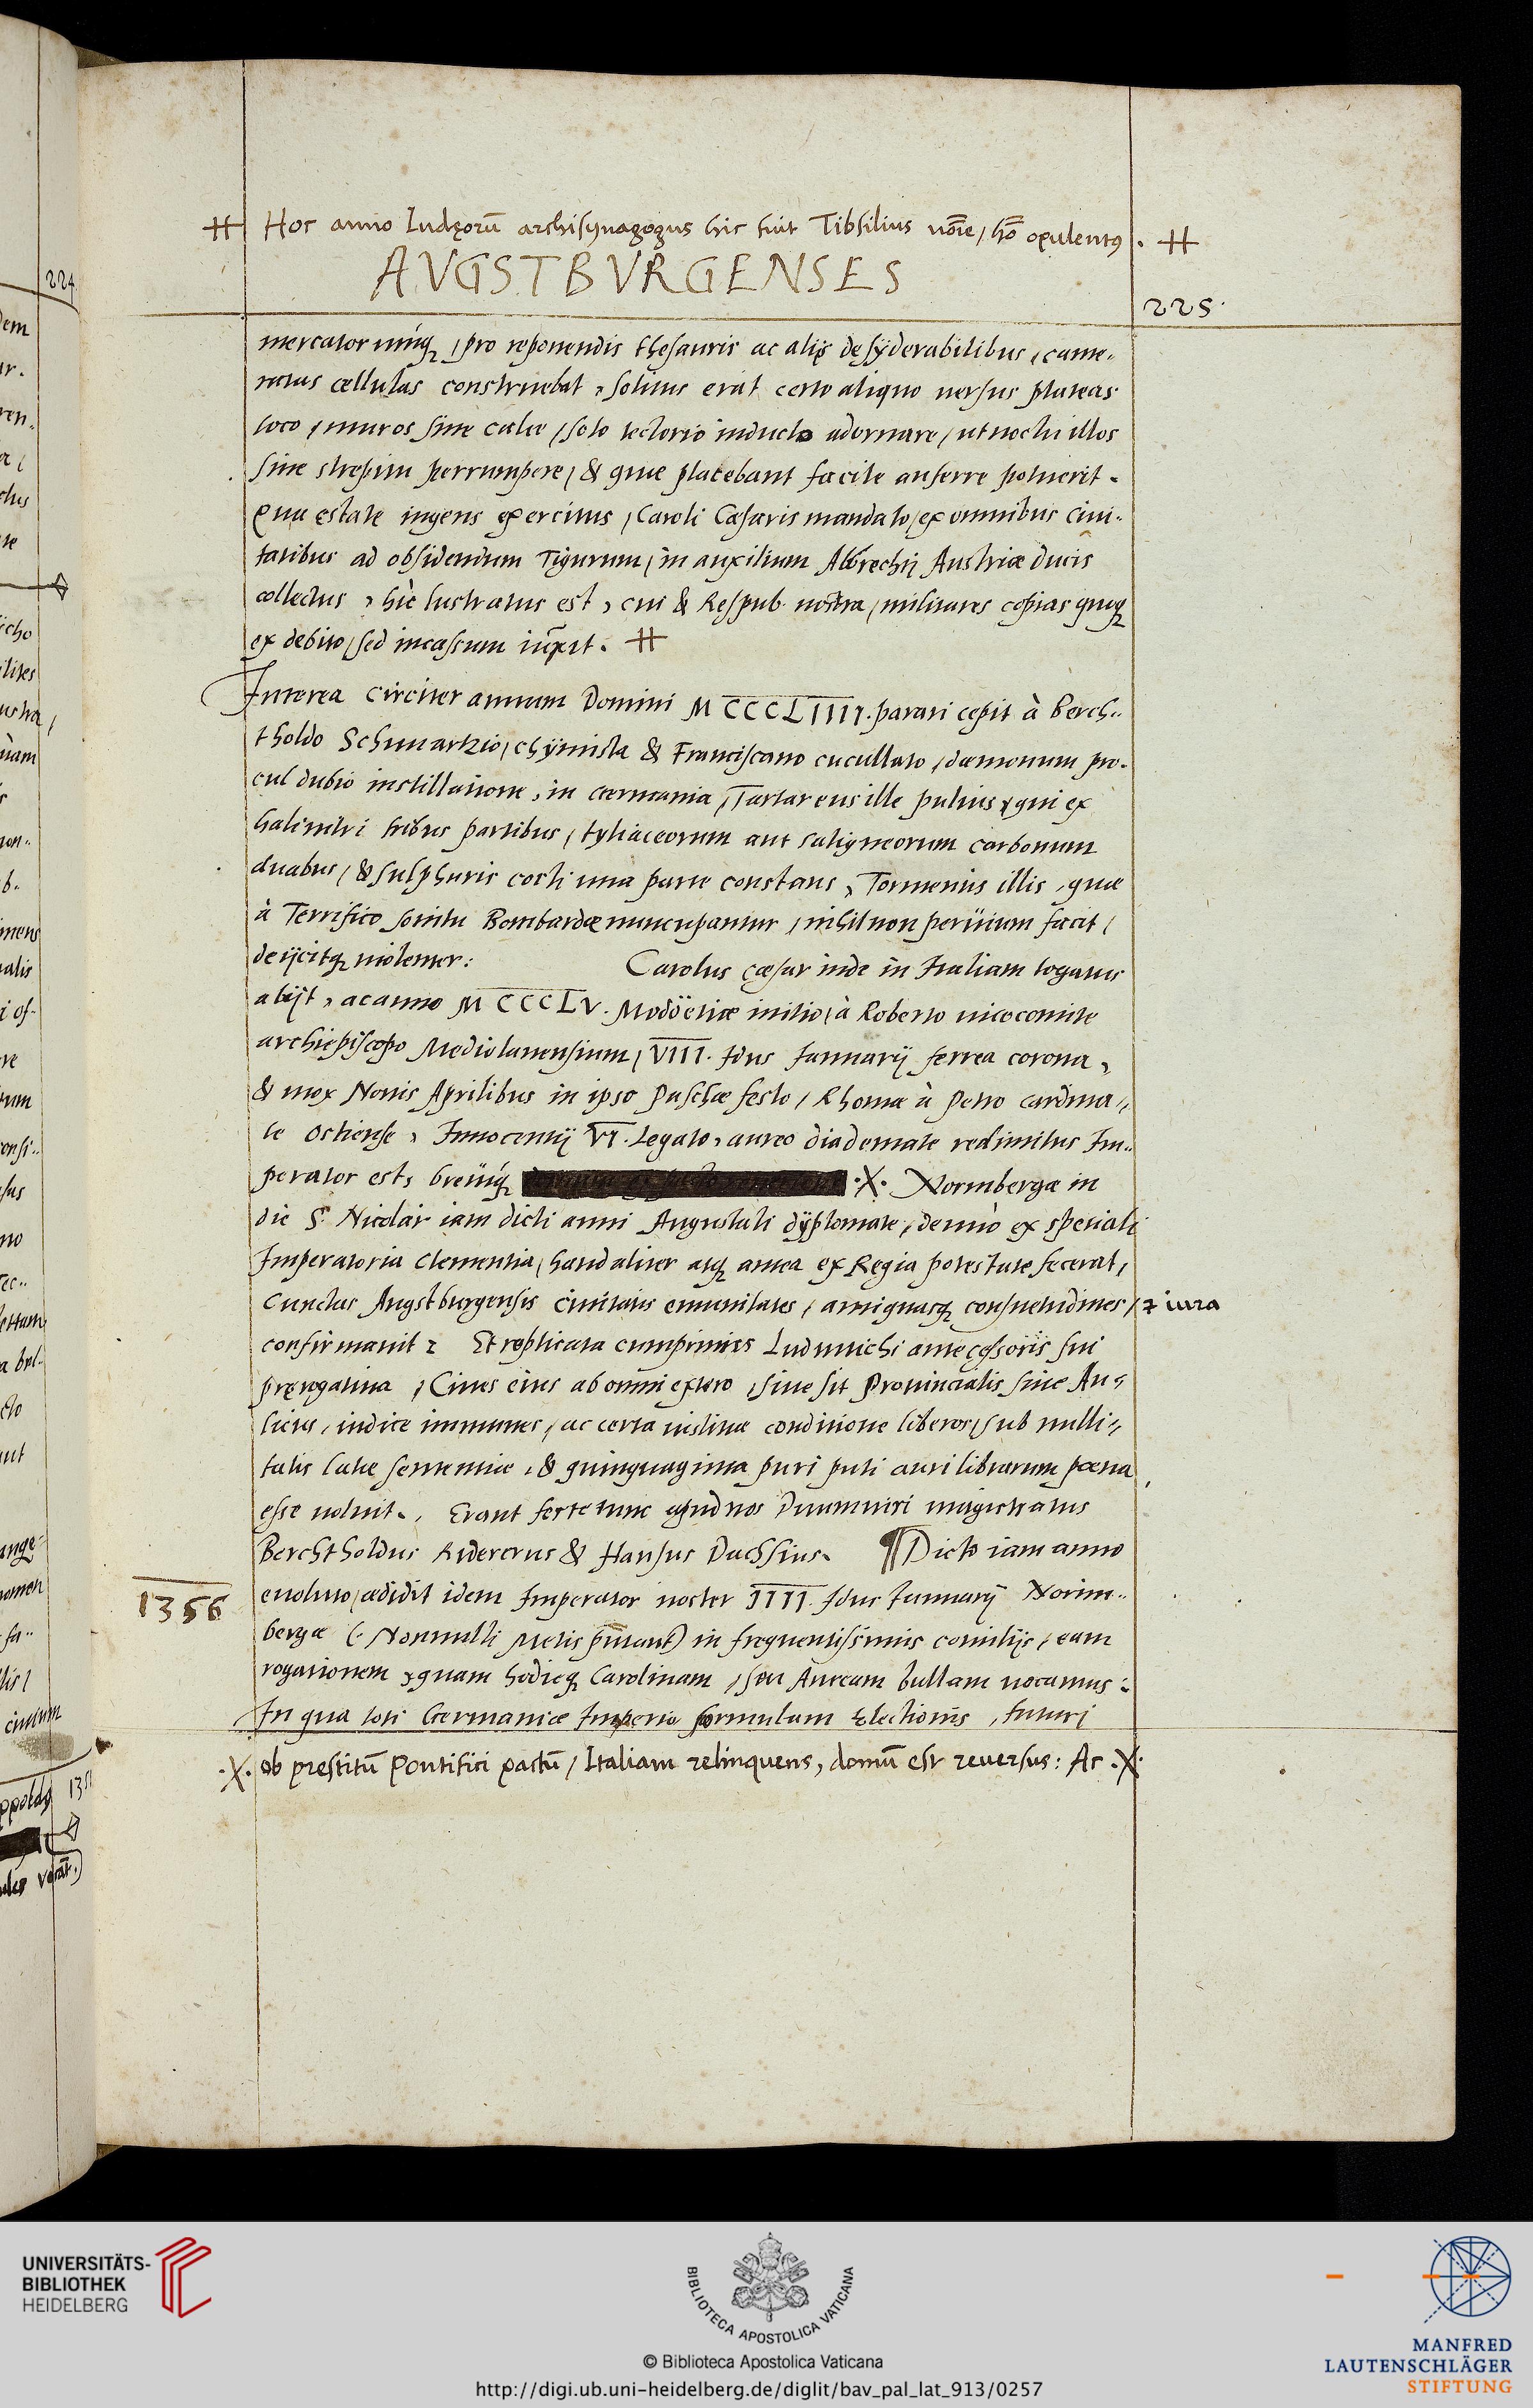 ⧺ Hoc anno Iudęorū archisynagogus hic fuit Tibsilius noīe, hō opulentꝰ. ⧺
AVGSTBVRGENSES
225.
mercatorumq́ꝫ, pro reponendis thesauris ac alijs desyderabilibus, came-
ratas cellulas construebat, solitus erat certo aliquo versus plateas
loco, muros sine calce, solo tectorio inducto adornare, ut noctu illos
sine strepitu perrumpere, & quae placebant facile auferre potuerit.
Qua ęstate ingens exercitus, Caroli Caesaris mandato, ex omnibus ciui-
tatibus ad obsidendum Tigurum, in auxilium Albrechti Austriae ducis
collectus, hic lustratus est, cui & Respub. nostra, militares copias quoqꝫ
ex debito, sed incassum iūxit. ⧺
Interea circiter annum Domini MCCCLIIII. parari cępit à Berch-
tholdo Schuuartzio, chymista & Franciscano cucullato, daemonum pro-
cul dubio instillatione, in Germania, Tartareus ille puluis, qui ex
halinitri tribus partibus, tyliaceorum aut saligneorum carbonum
duabus, & sulphuris cocti una parte constans, Tormentis illis, quae
à Terrifico sonitu Bombardae nuncupantur, nihil non peruium facit,
deijcitqꝫ uiolenter: Carolus caesar inde in Italiam togatus
abijt, ac anno MCCCLV. Modoëtiae initio, à Roberto uicecomite
archiepiscopo Mediolanensium, VIII. Idus Ianuarij ferrea corona,
& mox Nonis Aprilibus in ipso Paschae festo, Rhomae à Petro cardina-
le Ostiense, Innocentij VI. Legato, aureo diademate redimitus Im-
perator est, breuiq́ꝫ .X. Normbergae in
die S. Nicolai iam dicti anni Augustali dyplomate, denuò ex speciali
Imperatoria clementia, haud aliter atqꝫ antea ex Regia potestate fecerat,
Cunctas Augstburgensis ciuitatis emunitates, antiquasqꝫ consuetudines, ⁊ iura
confirmauit: Et replicata cumprimis Ludouichi antecęssoris sui
pręrogatiua, Ciues eius ab omni extero, siue sit Prouincialis siue Au-
licus, iudice immunes, ac certa uistinae conditione liberos, sub nulli-
tatis latae sententiae, & quinquaginta puri puti auri librarum poena
esse uoluit. Erant ferte tunc apud nos Duumuiri magistratus
Berchtholdus Ridererus & Hansus Dachsius. ¶ Dicto iam anno
1356
euoluto, aedidit idem Imperator noster IIII. Idus Ianuarij Norim-
bergae (Nonnulli Metis putant) in frequentissimis comitijs, eam
rogationem, quam hodieqꝫ Carolinam, seu Auream bullam uocamus:
In qua toti Germaniae Imperio formulam Electionis, futuri
.X. ob prestitū Pontifici pactū, Italiam relinquens, domū est reuersus: Ac .X.
224
UNIVERSITÄTS-
BIBLIOTHEK
HEIDELBERG
BIBLIOTECA APOSTOLICA VATICANA
© Biblioteca Apostolica Vaticana
http://digi.ub.uni-heidelberg.de/diglit/bav_pal_lat_913/0257
MANFRED
LAUTENSCHLÄGER
STIFTUNG